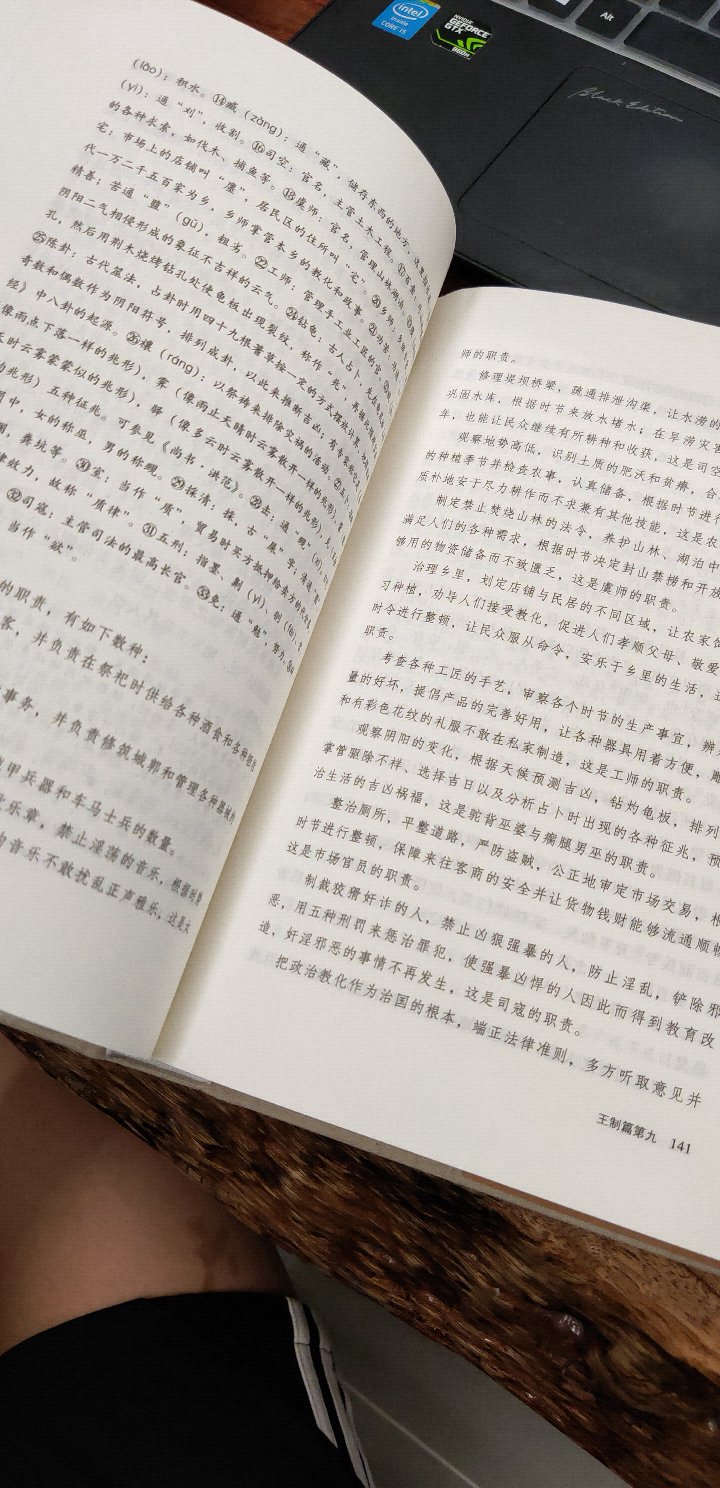 intel
inside
CORE i5
NVIDIA
GEFORCE
GTX
960M
Alt
Black Edition
(lǎo)：积水。⑭臧 (zàng)：通“藏”，储存东西的地方。
(yì)：通“刈”，收割。⑯司空：官名，主管土木工程。⑰
的各种求索，如伐木、捕鱼等。⑱虞师：官名，管理山林湖泊
宅；市场上的店铺叫“廛”，居民区的住所叫“宅”。⑳乡师
代一万二千五百家为乡，乡师掌管本乡的教化和政事。㉑
精善；苦通“盬”(gǔ)，粗劣。㉒工师：管理手工业工匠的官
阴阳二气相侵形成的象征不吉祥的云气。㉔钻龟：古人占卜
孔，然后用荆木烧烤钻孔处使龟板出现裂纹，称作“兆”
㉕陈卦：古代筮法，占卦时用四十九根蓍草按一定的方式摆放计算
奇数和偶数作为阴阳符号，排列成卦，以此来推断吉凶；有专家
经》中八卦的起源。㉖攘 (rǎng)：以祭祷来排除灾祸的活动。㉗五
像雨点下落一样的兆形)，霁 (像雨止天晴时云雾散开一样的兆形)
天时云雾蒙蒙似的兆形)，驿 (像多云时云雾散开一样的兆形)
的兆形) 五种征兆。可参见《尚书·洪范》。㉘击：通“觋”
中，女的称巫，男的称觋。㉙採清：採，古“采”字
粪坑等。㉚室：当作“质”，贸易时买方抵押给卖方的
律效力，故称“质律”。㉛五刑：指墨、劓 (yì)、剕
㉜司寇：主管司法的最高长官。㉝免：通“勉”，努力。
当作“欲”。
的职责，有如下数种：
客，并负责在祭祀时供给各种酒食
事务，并负责修筑城郭和管理各种器械的
甲兵器和车马士兵的数量。
乐章，禁止淫荡的音乐，根据时
音乐不敢扰乱正声雅乐，这是太
师的职责。
修理堤坝桥梁，疏通排泄沟渠，让水涝的
巩固水体，根据时节来放水堵水；在旱涝灾害
年，也能让民众继续有所耕种和收获，这是司空
观察地势高低，识别土质的肥沃和贫瘠，合
的种植季节并检查农事，认真储备，根据时节进行
质朴地安于尽力耕作而不求兼有其他技能，这是农
制定禁止焚烧山林的法令，养护山林、湖泊中
满足人们的各种需求，根据时节决定封山禁捞和开放
够用的物资储备而不致匮乏，这是虞师的职责。
治理乡里，划定店铺与民居的不同区域，让农家饲
习种植，劝导人们接受教化，促进人们孝顺父母、敬爱
时令进行整顿，让民众服从命令，安乐于乡里的生活，
职责。
考查各种工匠的手艺，审察各个时节的生产事宜，辨
量的好坏，提倡产品的完善好用，让各种器具用着方便，雕
和有彩色花纹的礼服不敢在私家制造，这是工师的职责。
观察阴阳的变化，根据天候预测吉凶，钻灼龟板，排列
掌管驱除不祥、选择吉日以及分析占卜时出现的各种征兆，预
治生活的吉凶祸福，这是驼背巫婆与瘸腿男巫的职责。
整治厕所，平整道路，严防盗贼，公正地审定市场交易，根
时节进行整顿，保障来往客商的安全并让货物钱财能够流通顺畅
这是市场官员的职责。
制裁狡猾奸诈的人，禁止凶狠强暴的人，防止淫乱，铲除邪
恶，用五种刑罚来惩治罪犯，使强暴凶悍的人因此而得到教育改
造，奸淫邪恶的事情不再发生，这是司寇的职责。
把政治教化作为治国的根本，端正法律准则，多方听取意见并
王制篇第九 141